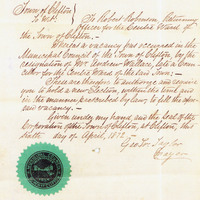 Town of Clifton
To Wit. To Robert Robinson Returning
Officer for the Centre Ward of
the Town of Clifton.
Whereas a vacancy has occurred in the
Municipal Council of the Town of Clifton, by the
resignation of Mr. Andrew Wallace, as a Coun-
cillor for the Centre Ward of the said Town;
These are therefore to authorize and require
you to hold a new Election, within the time and
in the manner prescribed by law, to fill the afore-
said vacancy.
Given under my hand and the Seal of the
Corporation of the Town of Clifton, at Clifton, this
day of April, 187
Mayor